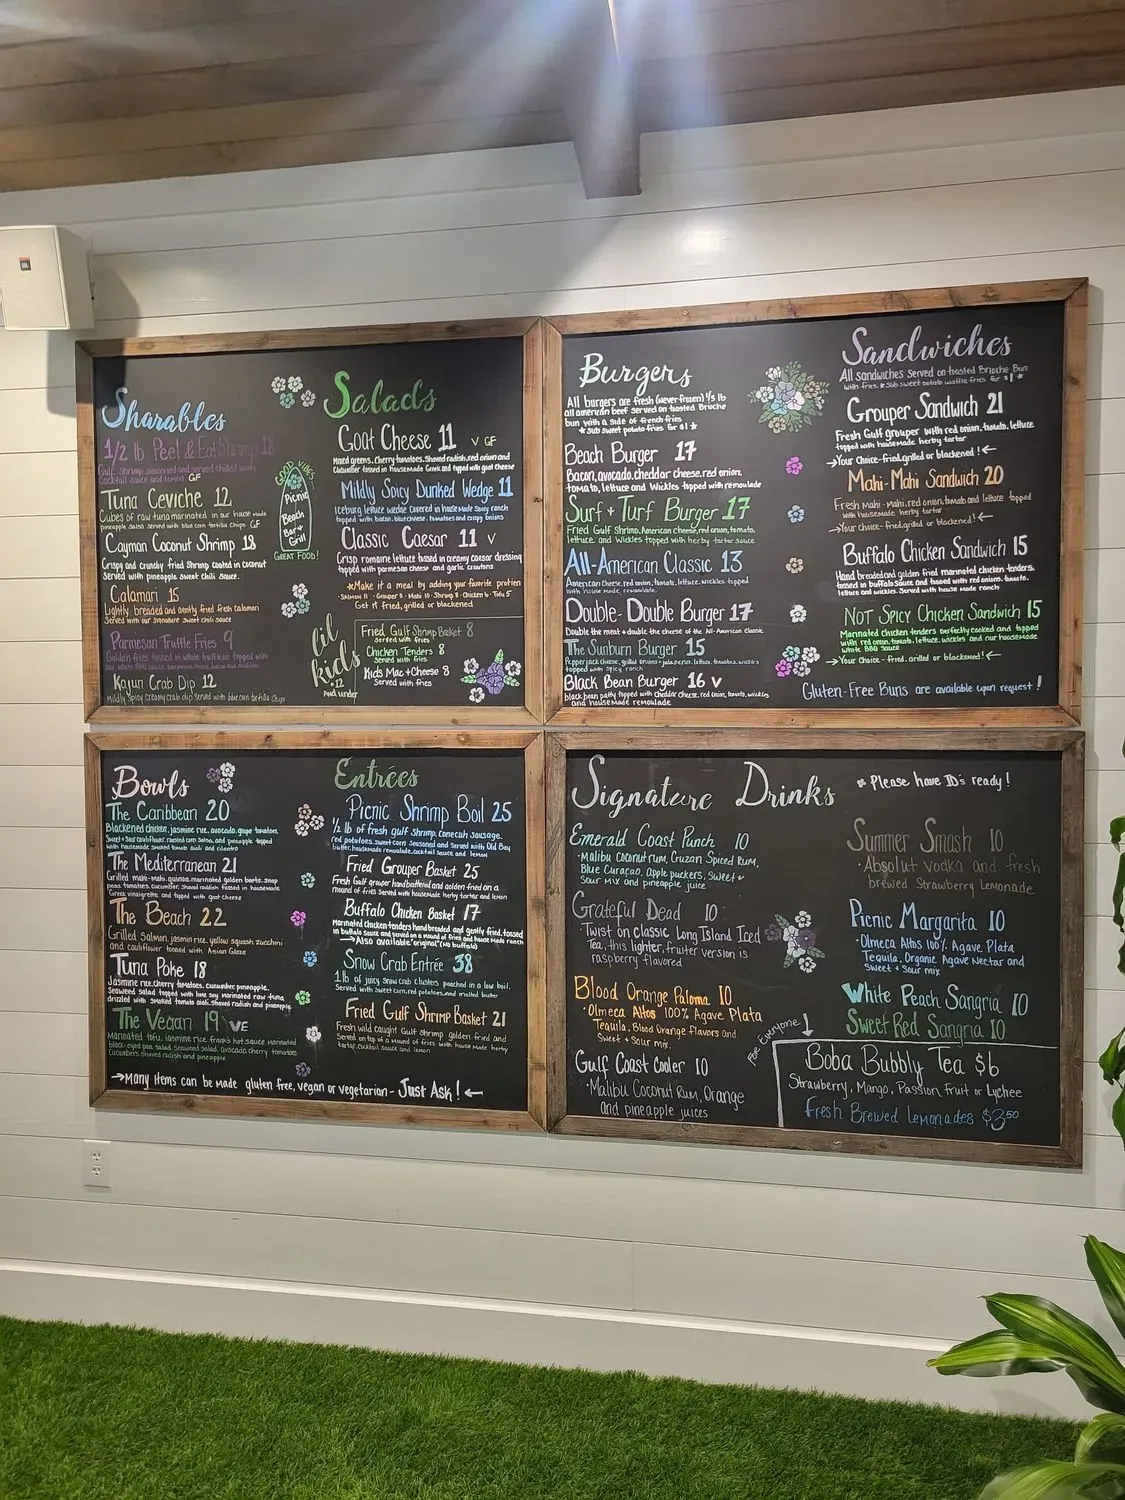 Sharables
1/2 lb Peel & Eat Shrimp 18
Gulf Shrimp seasoned and served chilled with
Cocktail sauce and lemon GF
Tuna Ceviche 12
Cubes of raw tuna marinated in our house made
pineapple salsa served with blue corn tortilla chips GF
Cayman Coconut Shrimp 18
Crispy and crunchy fried Shrimp coated in coconut
Served with pineapple sweet chili sauce.
Calamari 15
Lightly breaded and gently fried fresh calamari
Served with our signature sweet chili sauce
Parmesan Truffle Fries 9
Golden fries tossed in white truffle oil topped with
Kajun Crab Dip 12
Mildly spicy creamy crab dip served with blue corn tortilla chips
GOOD VIBES
Picnic
Beach
Bar +
Grill
GREAT FOOD!
Salads
Goat Cheese 11 V GF
Mixed greens, cherry tomatoes, Shaved radish, red onion and
Cucumber tossed in housemade Greek and topped with goat cheese
Mildly Spicy Dunked Wedge 11
Iceburg lettuce wedge covered in house made spicy ranch
topped with bacon, bluecheese, tomatoes and crispy onions
Classic Caesar 11 V
Crisp romaine lettuce tossed in creamy caesar dressing
topped with parmesan cheese and garlic croutons
*Make it a meal by adding your favorite protein
· Salmon 11 · Grouper 11 · Mahi 10 · Shrimp 8 · Chicken 6 · Tofu 5
Get it fried, grilled or blackened
lil
kids
12
and under
Fried Gulf Shrimp Basket 8
Served with fries
Chicken Tenders 8
Served with fries
Kids Mac + Cheese 8
Served with fries
Burgers
All burgers are fresh (never frozen) 1/3 lb
all american beef served on toasted Brioche
bun with a side of french fries
*Sub sweet potato fries for $1*
Beach Burger 17
Bacon, avocado, cheddar cheese, red onion,
tomato, lettuce and Wickles topped with remoulade
Surf + Turf Burger 17
Fried Gulf Shrimp, American cheese, red onion, tomato,
lettuce and Wickles topped with herby tartar
All-American Classic 13
American Cheese, red onion, tomato, lettuce, wickles topped
with house made remoulade
Double-Double Burger 17
Double the meat + double the cheese of the All-American Classic
The Sunburn Burger 15
Pepperjack cheese, grilled onions + jalapeños, lettuce, tomatoes, wickles
topped with spicy ranch
Black Bean Burger 16 V
black bean patty topped with cheddar cheese, red onion, tomato, wickles
and housemade remoulade
Sandwiches
All sandwiches Served on toasted Brioche Bun
with fries *sub sweet potato waffle fries for $1*
Grouper Sandwich 21
Fresh Gulf grouper with red onion, tomato, lettuce
topped with housemade herby tartar
→Your choice-fried, grilled or blackened!←
Mahi-Mahi Sandwich 20
Fresh Mahi-Mahi, red onion, tomato and lettuce topped
with housemade herby tartar
→Your choice-fried, grilled or blackened!←
Buffalo Chicken Sandwich 15
Hand breaded and golden fried marinated chicken tenders,
tossed in buffalo sauce and topped with red onions, tomato,
lettuce and wickles. Served with house made ranch
NOT SPICY Chicken Sandwich 15
Marinated chicken tenders perfectly cooked and topped
with red onion, tomato, lettuce, wickles and our housemade
White BBQ Sauce
→Your Choice-fried, grilled or blackened!←
Gluten-Free Buns are available upon request!
Bowls
The Caribbean 20
Blackened chicken, jasmine rice, avocado, grape tomatoes,
Sweet + Sour cauliflower, roasted corn salsa, and pineapple topped
with housemade smoked tomato aioli and cilantro
The Mediterranean 21
Grilled mahi-mahi, quinoa, marinated golden beets, snap
peas, tomatoes, cucumber, shaved radish tossed in housemade
Greek vinaigrette and topped with goat cheese
The Beach 22
Grilled Salmon, jasmine rice, yellow squash, zucchini
and cauliflower tossed with Asian Glaze
Tuna Poke 18
Jasmine rice, cherry tomatoes, cucumber, pineapple,
Seaweed salad topped with lime soy marinated raw tuna
drizzled with smoked tomato aioli, Shaved radish and pineapple
The Vegan 19 VE
Marinated tofu, jasmine rice, frank's hot sauce marinated
black-eyed pea salad, seaweed salad, avocado, cherry tomatoes,
Cucumbers, shaved radish and pineapple
→Many items can be made gluten free, vegan or vegetarian - Just Ask!←
Entrées
Picnic Shrimp Boil 25
1/2 lb of fresh gulf shrimp, conecuh sausage,
red potatoes, sweet corn seasoned and served with Old Bay
butter, housemade remoulade, cocktail sauce and lemon
Fried Grouper Basket 25
Fresh Gulf grouper hand battered and golden fried on a
mound of fries Served with housemade herby tartar and lemon
Buffalo Chicken Basket 17
Marinated Chicken tenders hand breaded and gently fried, tossed
in buffalo sauce and served on a mound of fries and house made ranch
→Also available "original" (no buffalo)
Snow Crab Entrée 38
1 lb of juicy snow crab clusters poached in a low boil,
Served with sweet corn, red potatoes, and melted butter
Fried Gulf Shrimp Basket 21
Fresh wild caught Gulf Shrimp golden fried and
Served on top of a mound of fries with house made herby
tartar, cocktail sauce and lemon
Signature Drinks
* Please have ID's ready!
Emerald Coast Punch 10
· Malibu Coconut rum, Cruzan Spiced Rum,
Blue Curaçao, Apple puckers, Sweet +
Sour mix and pineapple juice
Grateful Dead 10
· Twist on classic Long Island Iced
Tea, this lighter, fruiter version is
raspberry flavored
Blood Orange Paloma 10
· Olmeca Altos 100% Agave Plata
Tequila, Blood Orange flavors and
Sweet + Sour mix.
Gulf Coast Cooler 10
· Malibu Coconut Rum, Orange
and pineapple juices
Summer Smash 10
· Absolut Vodka and fresh
brewed Strawberry Lemonade
Picnic Margarita 10
· Olmeca Altos 100% Agave Plata
Tequila, Organic Agave Nectar and
Sweet + Sour mix
White Peach Sangria 10
Sweet Red Sangria 10
For Everyone
Boba Bubbly Tea $6
Strawberry, Mango, Passion fruit or Lychee
Fresh Brewed Lemonades $3.50